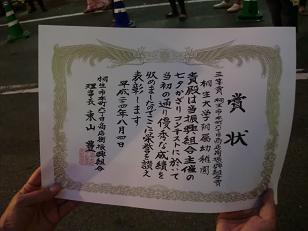 賞状
三等賞 桐生市本町六丁目商店街振興組合賞
桐生大学附属幼稚園
貴殿は当振興組合主催の
七夕かざりコンテストに於いて
当初の通り優秀な成績を
収めましたのでここに栄誉を讃え
表彰します
平成二四年八月四日
桐生市本町六丁目商店街振興組合
理事長 東山 豊